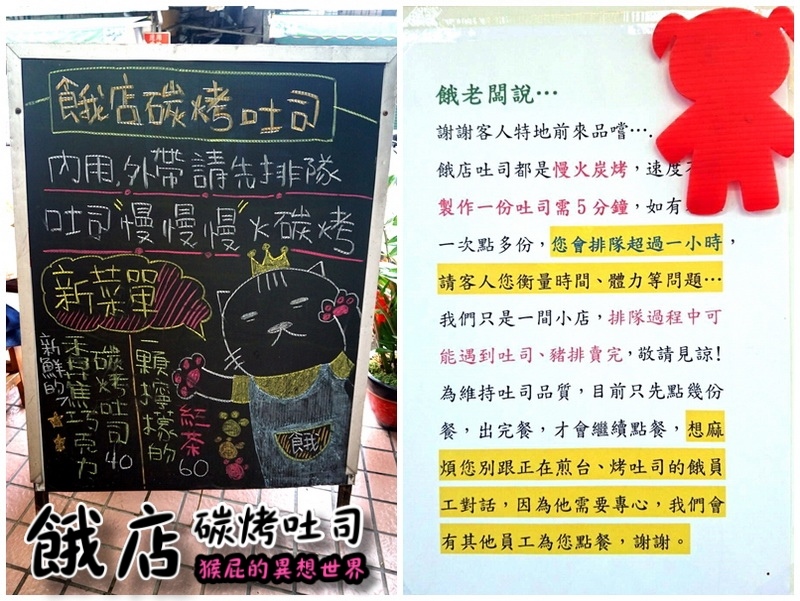 餓店碳烤吐司
內用.外帶請先排隊
吐司"慢慢慢"火碳烤
新菜單
一顆檸檬的
紅茶
60
碳烤吐司40
香蕉巧克力
新鮮的
餓
餓店
碳烤吐司
猴屁的異想世界
餓老闆說…
謝謝客人特地前來品嚐….
餓店吐司都是慢火炭烤，速度
製作一份吐司需5分鐘，如有
一次點多份，您會排隊超過一小時，
請客人您衡量時間、體力等問題…
我們只是一間小店，排隊過程中可
能遇到吐司、豬排賣完，敬請見諒!
為維持吐司品質，目前只先點幾份
餐，出完餐，才會繼續點餐，想麻
煩您別跟正在煎台、烤吐司的餓員
工對話，因為他需要專心，我們會
有其他員工為您點餐，謝謝。